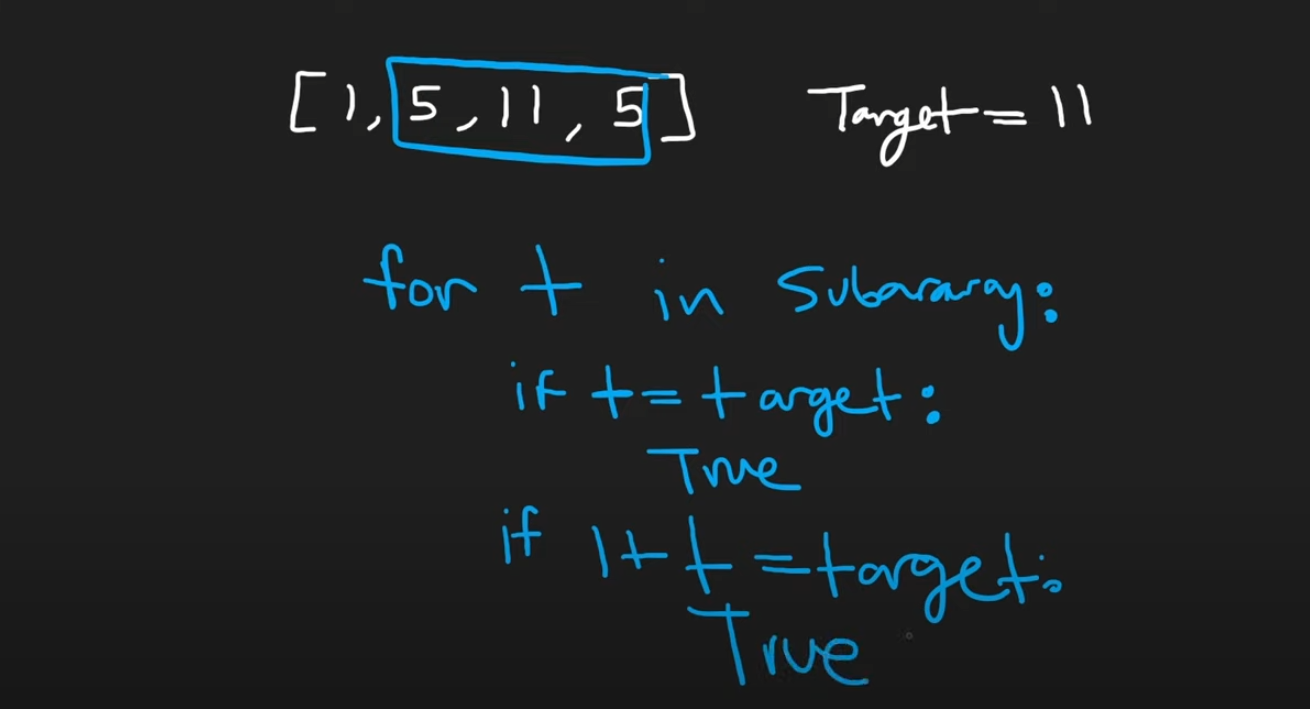 [1, 5, 11, 5] Target = 11
for t in Subararay:
if t = target:
True
if 1+ t = target:
True